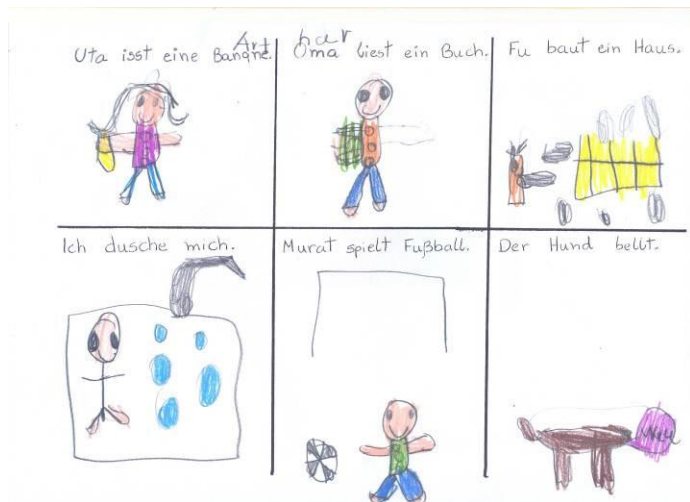 Art hur
Uta isst eine Banane.
Oma liest ein Buch.
Fu baut ein Haus.
Ich dusche mich.
Murat spielt Fußball.
Der Hund bellt.